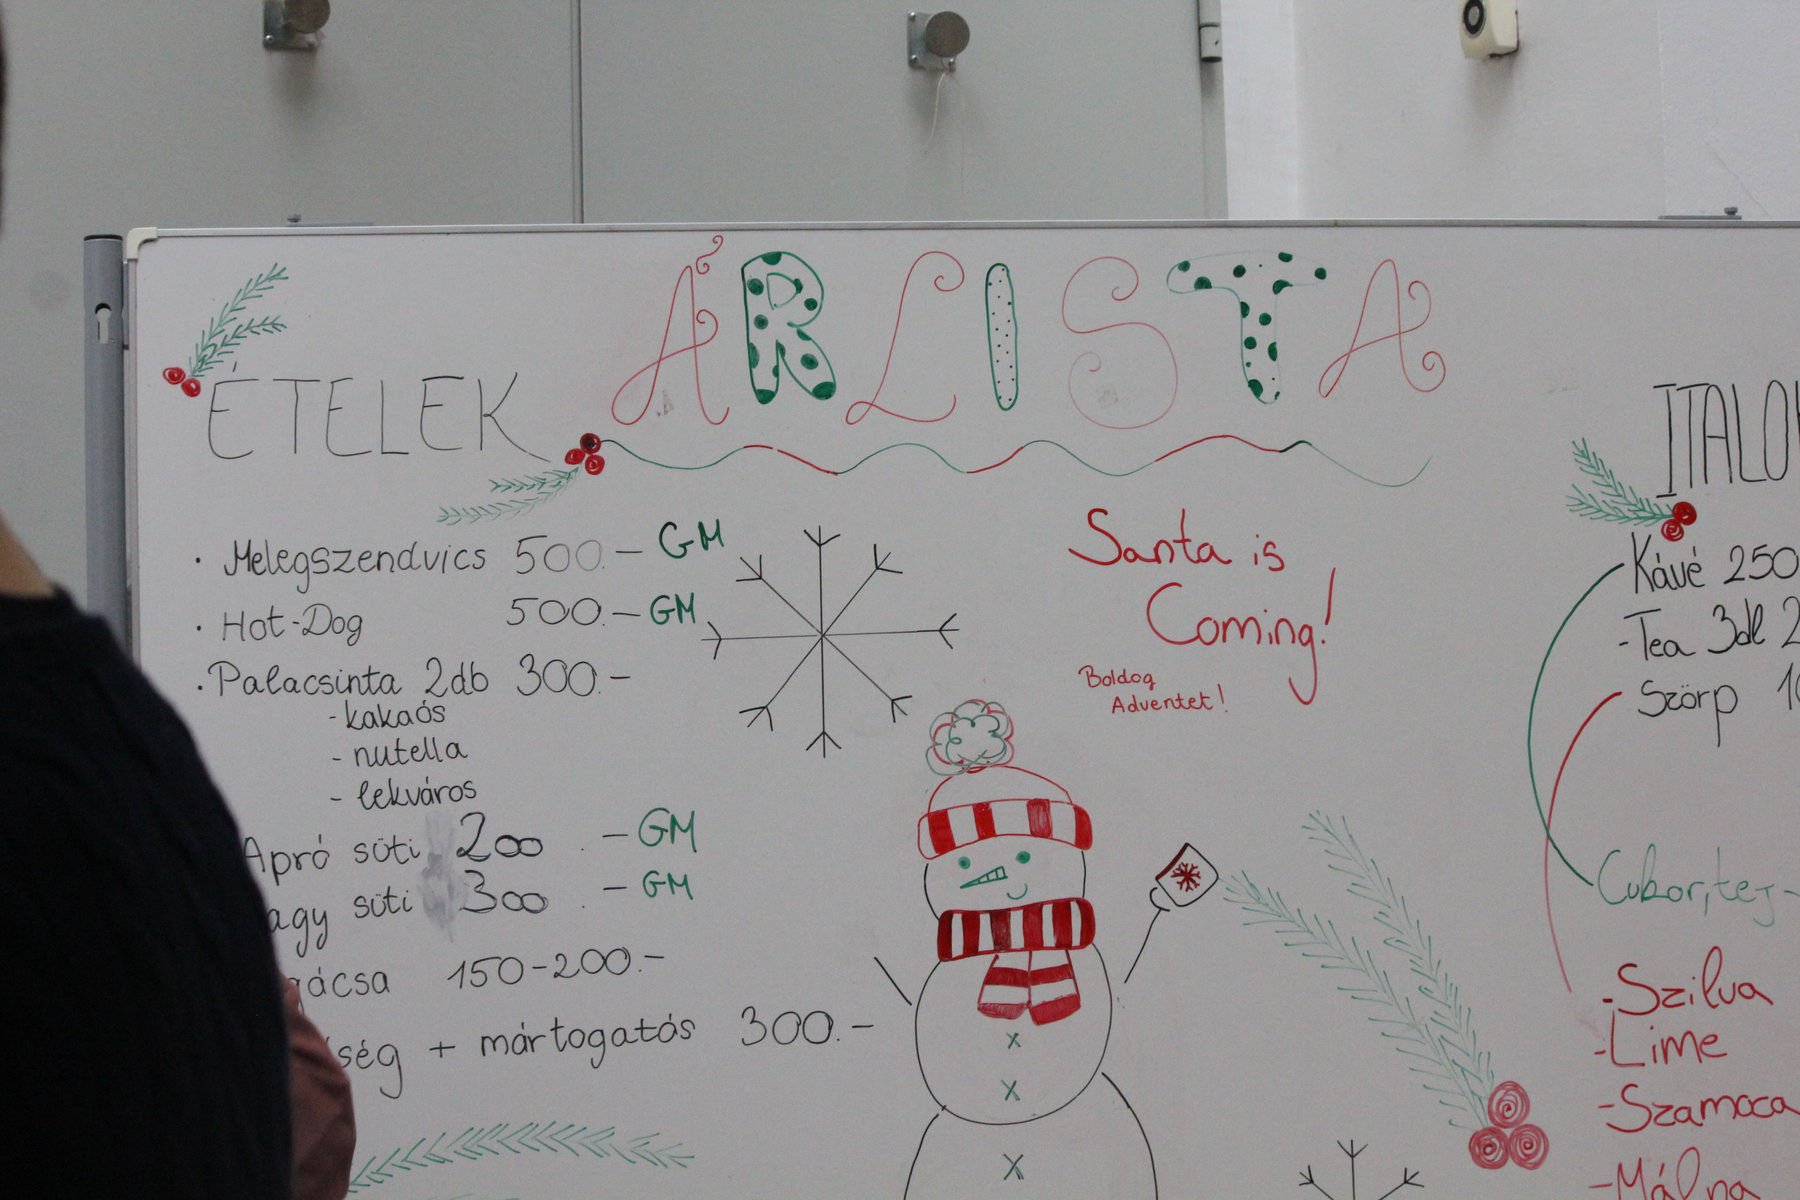 ÁRLISTA
ÉTELEK
· Melegszendvics 500.- GM
· Hot-Dog 500.- GM
· Palacsinta 2db 300.-
- kakaós
- nutella
- lekváros
Apró süti 200.- GM
agy süti 300.- GM
gácsa 150-200.-
ség + mártogatós 300.-
Santa is
Coming!
Boldog
Adventet!
ITALO
Kávé 250
-Tea 3dl 2
Szörp 10
Cukor, tej-
-Szilva
-Lime
-Szamóca
-Málna